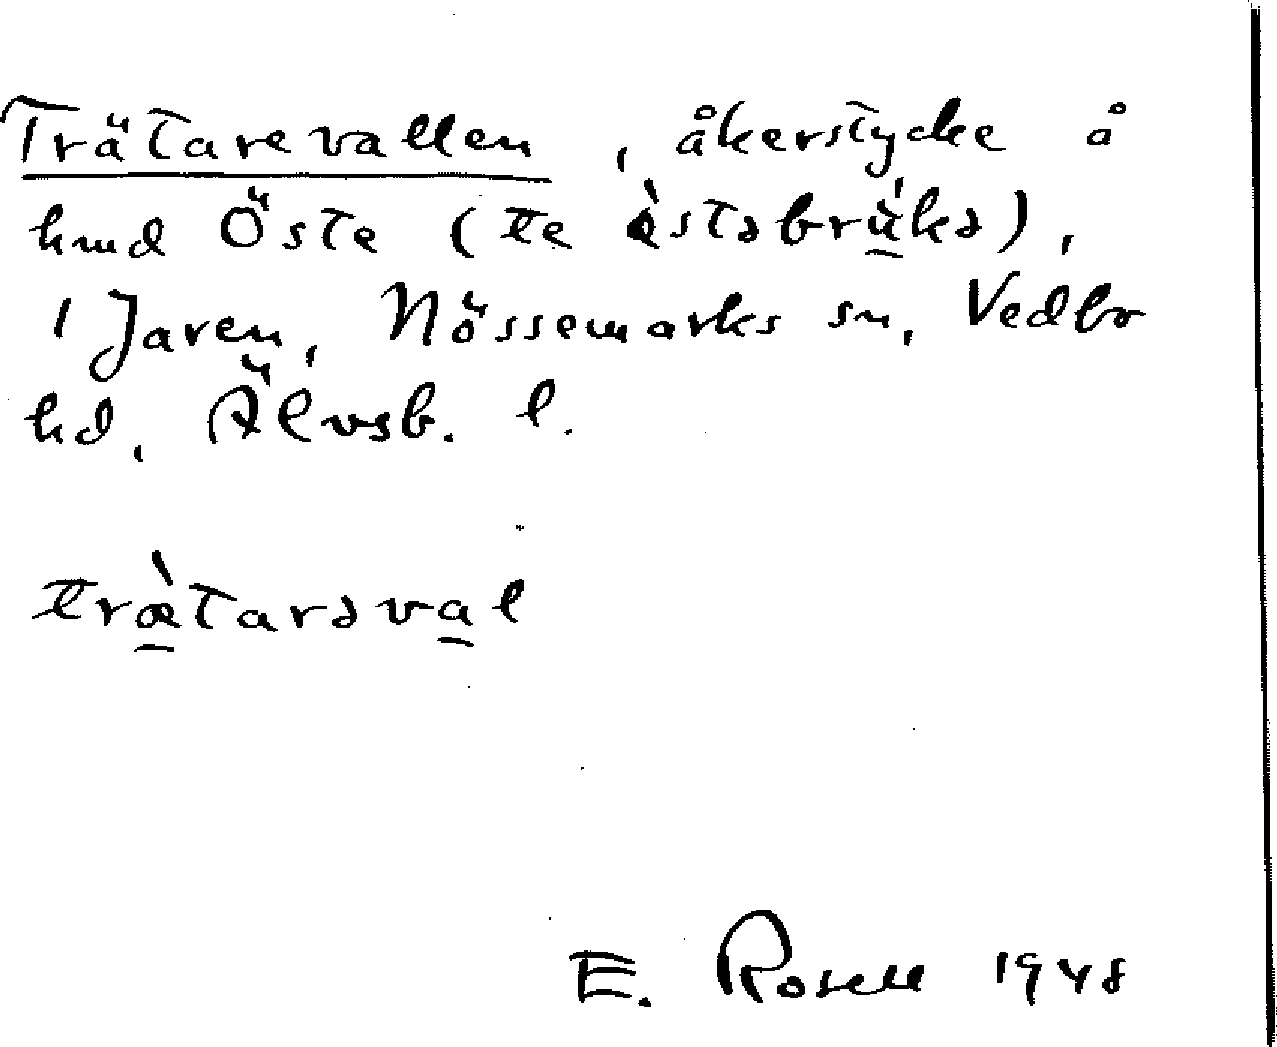 Trätarevallen, åkerstycke å
hmd Öste (te östəbrukə),
i Jaren, Nössemarks sn, Vedbo
hd, Älvsb. l.
træ̀tarəval
E. Rosell 1948